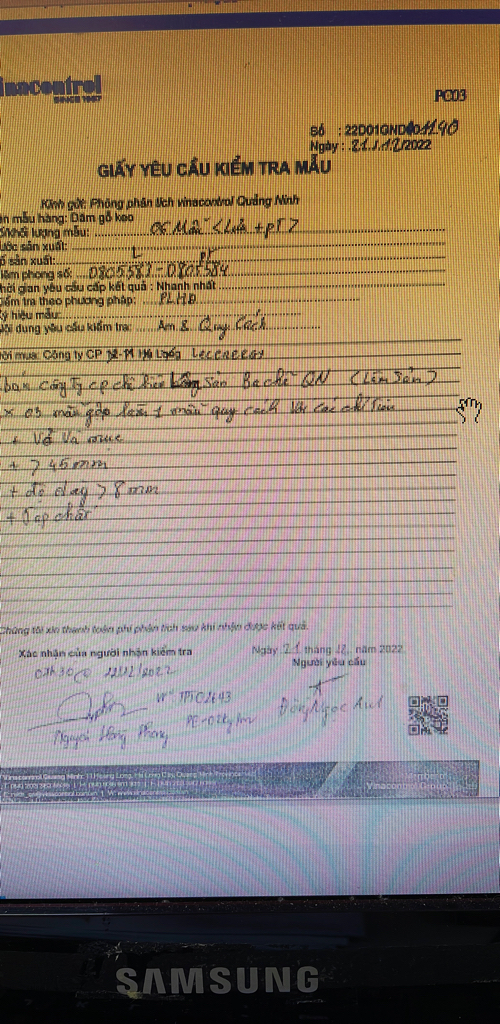 inacontrol
SINCE 1957
PC03
Số : 22D01GND01190
Ngày : 21/12/2022
GIẤY YÊU CẦU KIỂM TRA MẪU
Kính gửi: Phòng phân tích vinacontrol Quảng Ninh
ên mẫu hàng: Dăm gỗ keo
khối lượng mẫu: 06 Mẫu < Lưu + PT >
ước sản xuất:
ố sản xuất: L PT
iêm phong số: 0805581 - 0805584
hời gian yêu cầu cấp kết quả : Nhanh nhất
iểm tra theo phương pháp: PLHD
ý hiệu mẫu:
ội dung yêu cầu kiểm tra: Ẩm & Quy Cách
ời mua: Công ty CP
bán công ty cp chế biến Lâm Sản Ba chẽ QN (Lâm Sản)
x 03 mẫu gộp làm 1 mẫu quy cách với các chỉ tiêu
+ Vỏ và mục
+ > 45mm
+ độ dày > 8mm
+ Tạp chất
Chúng tôi xin thanh toán phí phân tích sau khi nhận được kết quả.
Xác nhận của người nhận kiểm tra
Ngày 21 tháng 12 năm 2022
Người yêu cầu
22/12/2022
Nguyễn Hồng Phong
Đồng Ngọc Anh
Vinacontrol Quang Ninh:
Member of
Vinacontrol Group
SAMSUNG